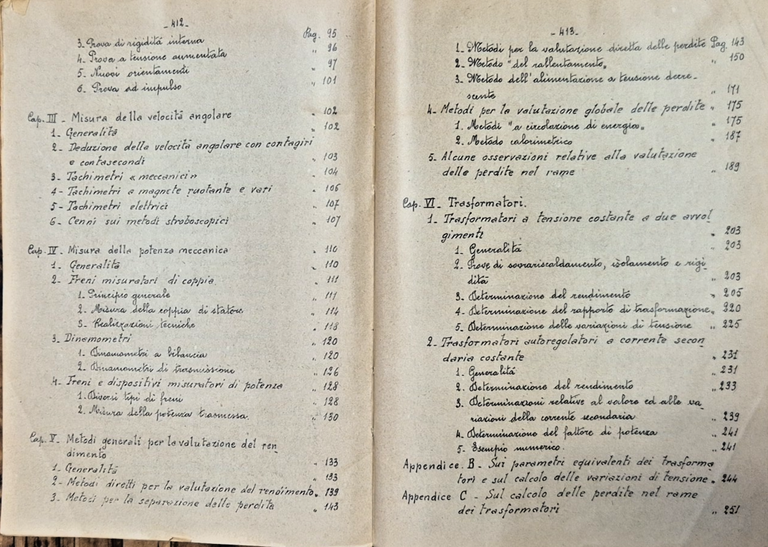 _ 412 _
3. Prova di rigidità interna Pag. 95
4. Prova a tensione aumentata " 96
5. Nuovi orientamenti " 97
6. Prova ad impulso " 101
Cap. III - Misura della velocità angolare " 102
1- Generalità " 102
2- Deduzione della velocità angolare con contagiri
e contasecondi " 103
3- Tachimetri "meccanici" " 104
4- Tachimetri a magnete ruotante e vari " 106
5- Tachimetri elettrici " 107
6- Cenni sui metodi stroboscopici " 107
Cap. IV - Misura della potenza meccanica " 110
1- Generalità " 110
2- Freni misuratori di coppia " 111
1. Principio generale " 111
2. Misura della coppia di statore " 114
3. Realizzazioni tecniche " 118
3. Dinamometri " 120
1. Dinamometri a bilancia " 120
2. Dinamometri di trasmissione " 126
4. Freni e dispositivi misuratori di potenza " 128
1. Diversi tipi di freni " 128
2. Misura della potenza trasmessa " 130
Cap. V - Metodi generali per la valutazione del ren_
dimento " 133
1- Generalità " 133
2- Metodi diretti per la valutazione del rendimento " 139
3- Metodi per la separazione delle perdite " 143
_ 413 _
1- Metodi per la valutazione diretta delle perdite Pag. 143
2- Metodo "del rallentamento" " 150
3- Metodo dell'alimentazione a tensione decre_
scente " 171
4- Metodi per la valutazione globale delle perdite " 175
1. Metodi "a circolazione di energia" " 175
2. Metodo calorimetrico " 187
5. Alcune osservazioni relative alla valutazione
delle perdite nel rame " 189
Cap. VI - Trasformatori.
1- Trasformatori a tensione costante a due avvol_
gimenti " 203
1. Generalità " 203
2. Prove di sovrariscaldamento, isolamento e rigi_
dità " 203
3. Determinazione del rendimento " 205
4. Determinazione del rapporto di trasformazione " 220
5. Determinazione delle variazioni di tensione " 225
2- Trasformatori autoregolatori a corrente secon_
daria costante " 231
1. Generalità " 231
2. Determinazione del rendimento " 233
3. Determinazioni relative al valore ed alle va_
riazioni della corrente secondaria " 239
4. Determinazione del fattore di potenza " 241
5. Esempio numerico " 241
Appendice B - Sui parametri equivalenti dei trasforma_
tori e sul calcolo delle variazioni di tensione " 244
Appendice C - Sul calcolo delle perdite nel rame
dei trasformatori " 251